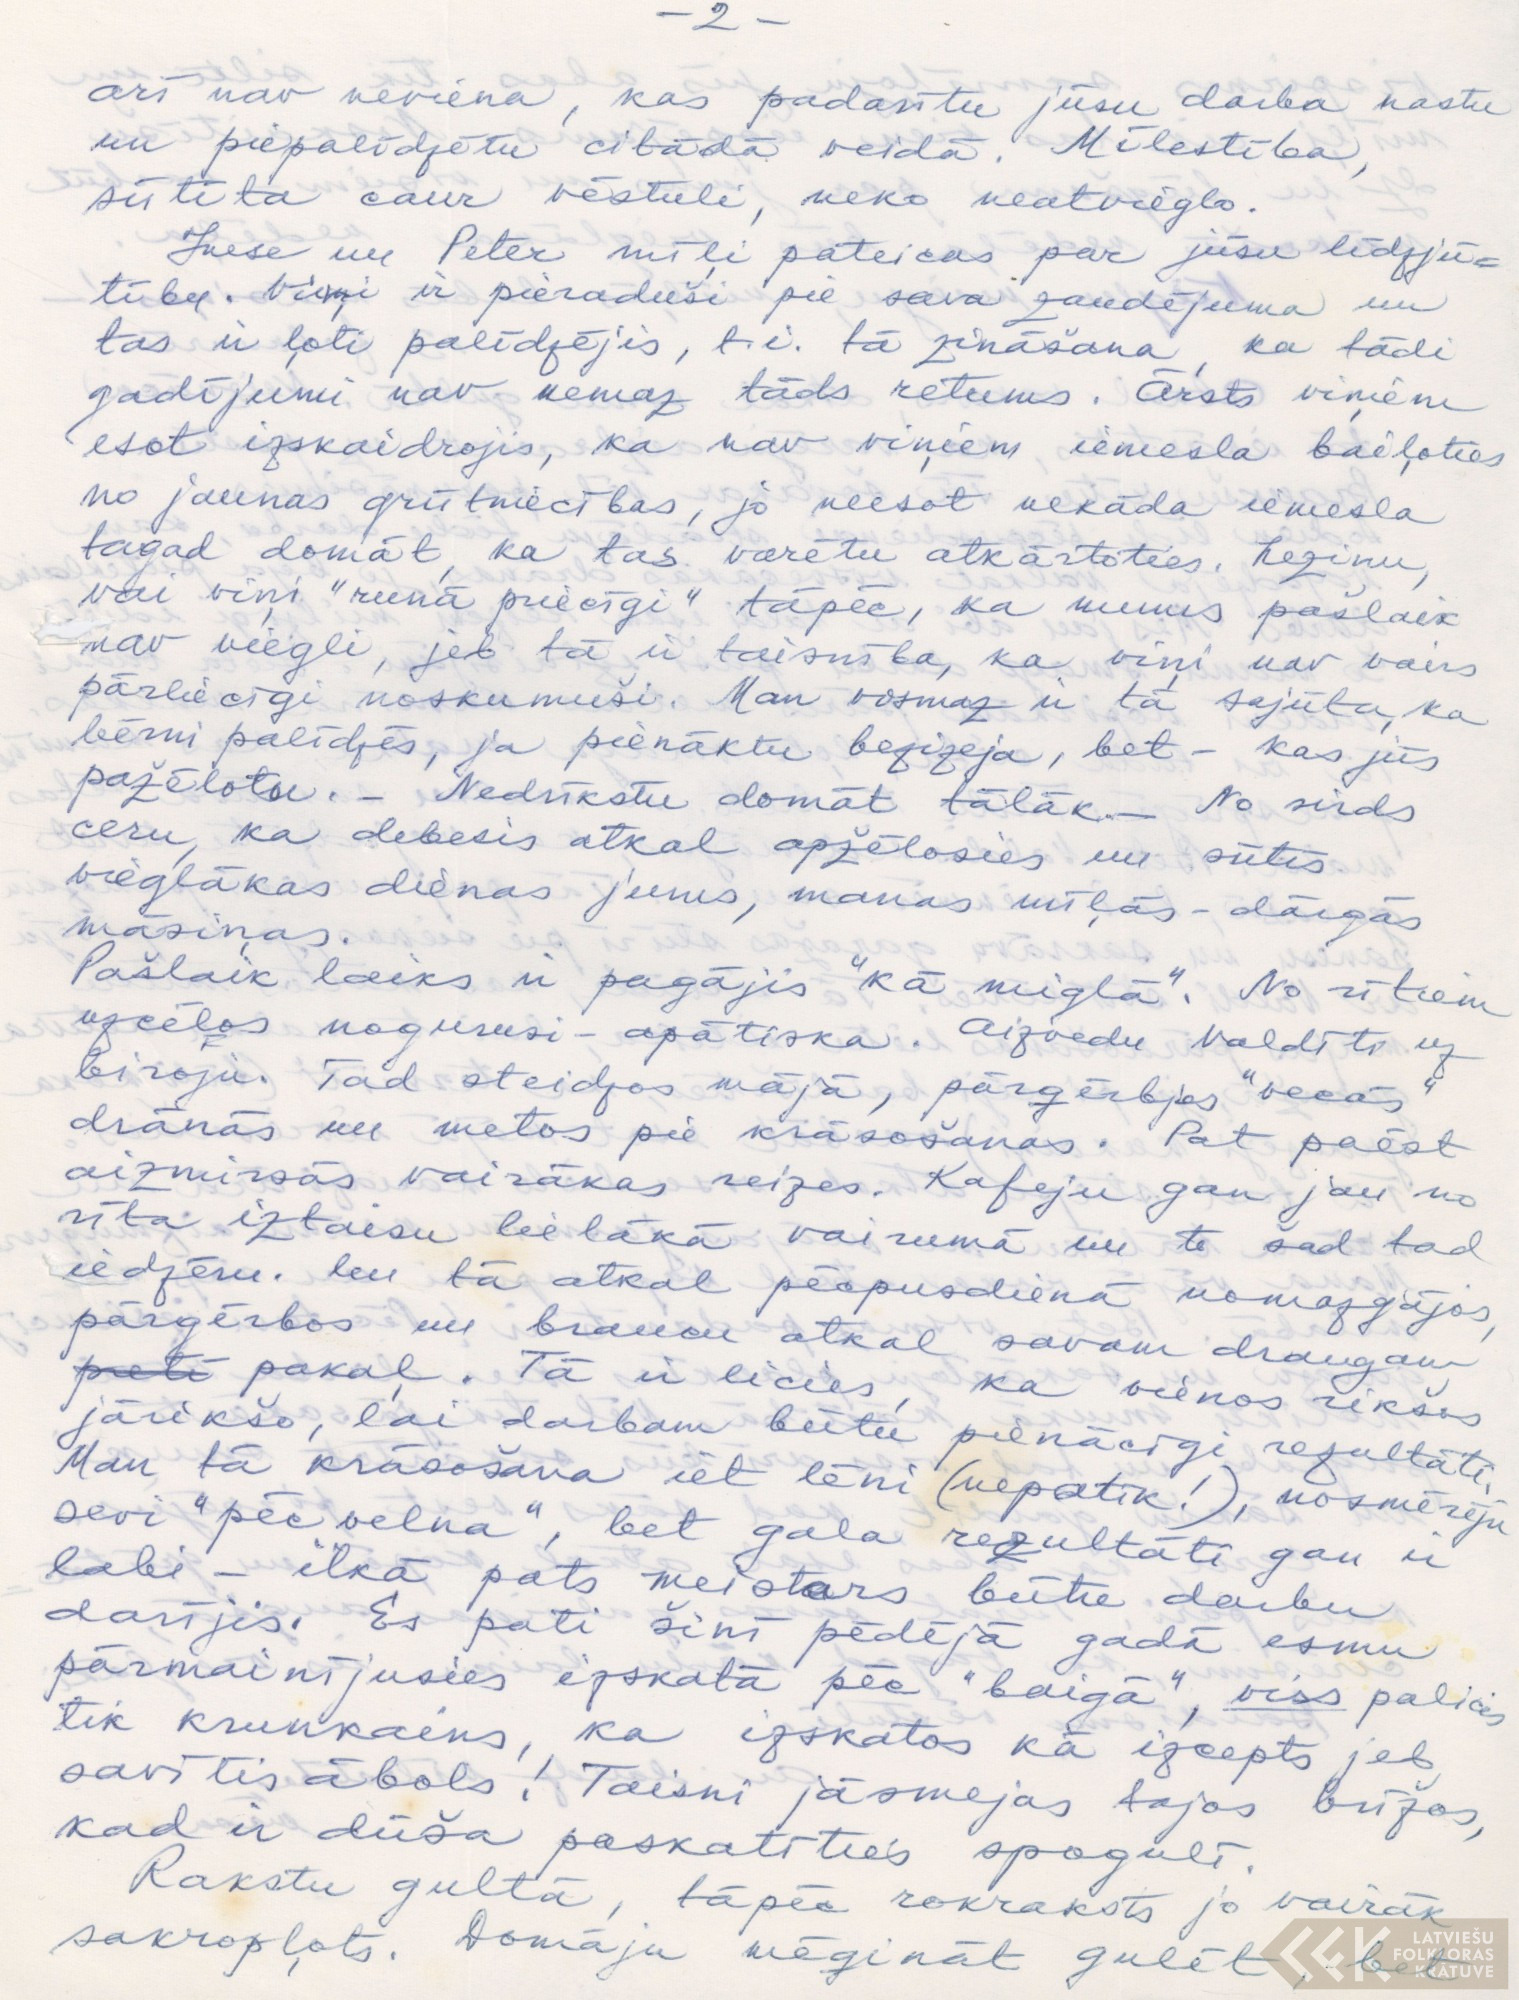 -2-
arī nav neviena, kas padarītu jūsu darba nastu
un piepalīdzētu citādā veidā. Mīlestība,
sūtīta caur vēstuli, neko neatvieglo.
Inese un Peter mīļi pateicas par jūsu līdzjū=
tību. Viņi ir pieraduši pie sava zaudējuma un
tas ir ļoti palīdzējis, t.i. tā zināšana, ka tādi
gadījumi nav nemaz tāds retums. Ārsts viņiem
esot izskaidrojis, ka nav viņiem iemesla baiļoties
no jaunas grūtniecības, jo neesot nekāda iemesla
tagad domāt, ka tas varētu atkārtoties. Nezinu,
vai viņi "runā priecīgi" tāpēc, ka mums pašlaik
nav viegli, jeb tā ir taisnība, ka viņi nav vairs
pārliecīgi noskumuši. Man vismaz ir tā sajūta, ka
bērni palīdzēs, ja pienāktu bezizeja, bet - kas jūs
pažēlotu. - Nedrīkstu domāt tālāk. - No sirds
ceru, ka debesis atkal apžēlosies un sūtīs
vieglākas dienas jums, manas mīļās - dārgās
māsiņas.
Pašlaik laiks ir pagājis "kā miglā". No rītiem
uzcēlos nogurusi - apātiska. Aizvedu Valdīti uz
biroju. Tad steidzos mājā, pārģērbjos "vecās"
drānās un metos pie krāsošanas. Pat paēst
aizmirsās vairākas reizes. Kafeju gan jau no
rīta iztaisu lielākā vairumā un to šad tad
iedzēru. Un tā atkal pēcpusdienā nomazgājos,
pārģērbos un braucu atkal savam draugam
pretī pakaļ. Tā ir licies, ka vienos rikšos
jārikšo, lai darbam būtu pienācīgi rezultāti.
Man tā krāsošana iet lēni (nepatīk!), nosmērēju
sevi "pēc velna", bet gala rezultāti gan ir
labi - itkā pats meistars būtu darbu
darījis. Es pati šinī pēdējā gadā esmu
pārmainījusies izskatā pēc "baigā", viss palicis
tik krunkains, ka izskatos kā izcepts jeb
savītis ābols! Taisni jāsmejas tajos brīžos,
kad ir dūša paskatīties spogulī.
Rakstu gultā, tāpēc rokraksts jo vairāk
sakropļots. Domāju mēģināt gulēt, bet
LATVIEŠU
FOLKLORAS
KRĀTUVE